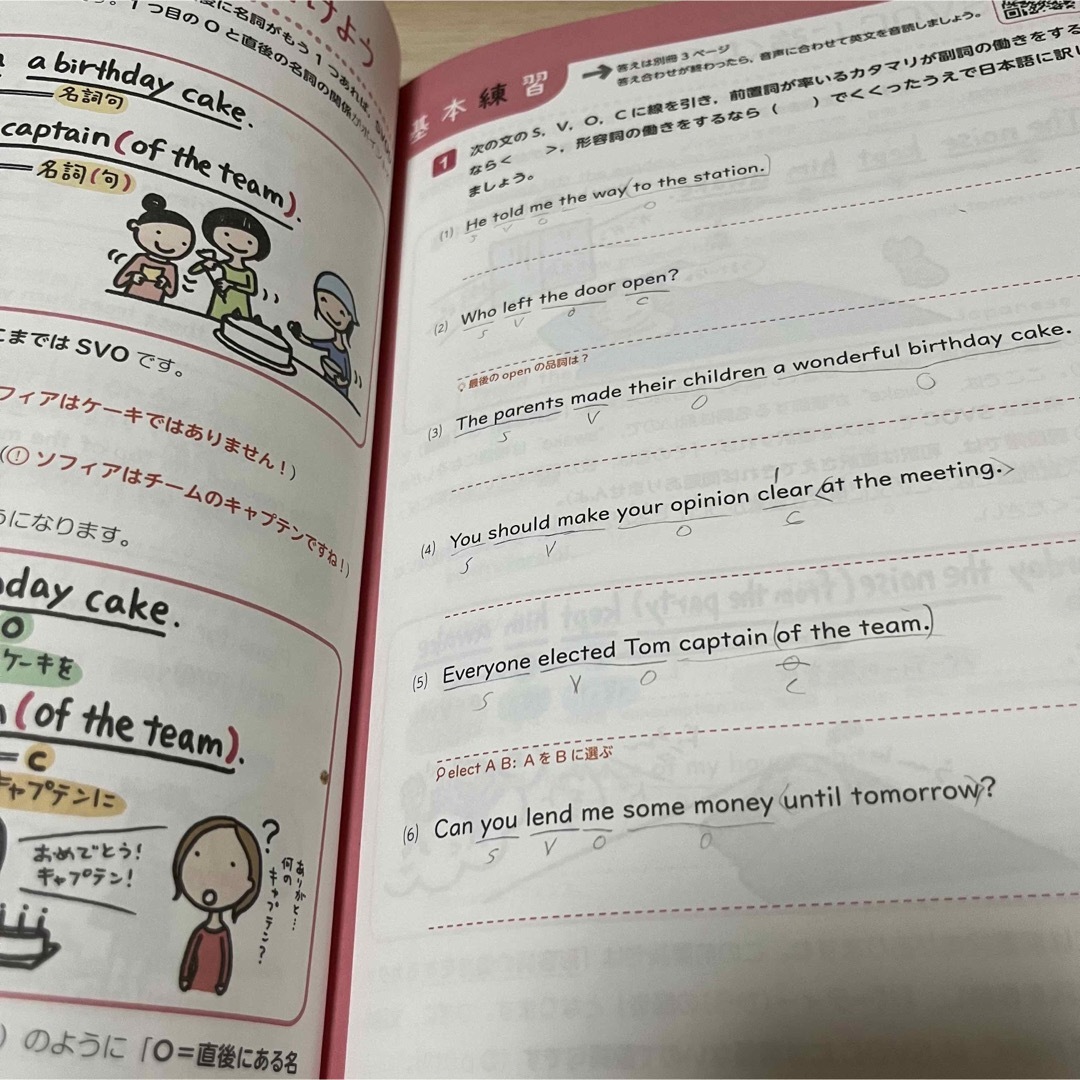 けよう
後に名詞がもう1つあれば,
1つ目のOと直後の名詞の関係が
a birthday cake.
名詞句
captain (of the team).
名詞(句)
こまではSVOです。
フィアはケーキではありません!)
(! ソフィアはチームのキャプテンですね!)
うになります。
day cake.
O
ケーキを
(of the team).
= C
キャプテンに
おめでとう!
キャプテン!
?
ありがと…
何の
キャプテン?
)のように「O=直後にある名
基本練習
答えは別冊3ページ
答え合わせが終わったら,音声に合わせて英文を音読しましょう。
1 次の文のS,V,O,Cに線を引き,前置詞が率いるカタマリが副詞の働きをする
なら< >,形容詞の働きをするなら( )でくくったうえで日本語に訳し
ましょう。
(1) He told me the way (to the station.)
S V O O
(2) Who left the door open?
S V O C
最後のopenの品詞は?
(3) The parents made their children a wonderful birthday cake.
S V O O
(4) You should make your opinion clear <at the meeting.>
S V O C
(5) Everyone elected Tom captain (of the team.)
S V O C
elect A B: AをBに選ぶ
(6) Can you lend me some money (until tomorrow)?
S V O O